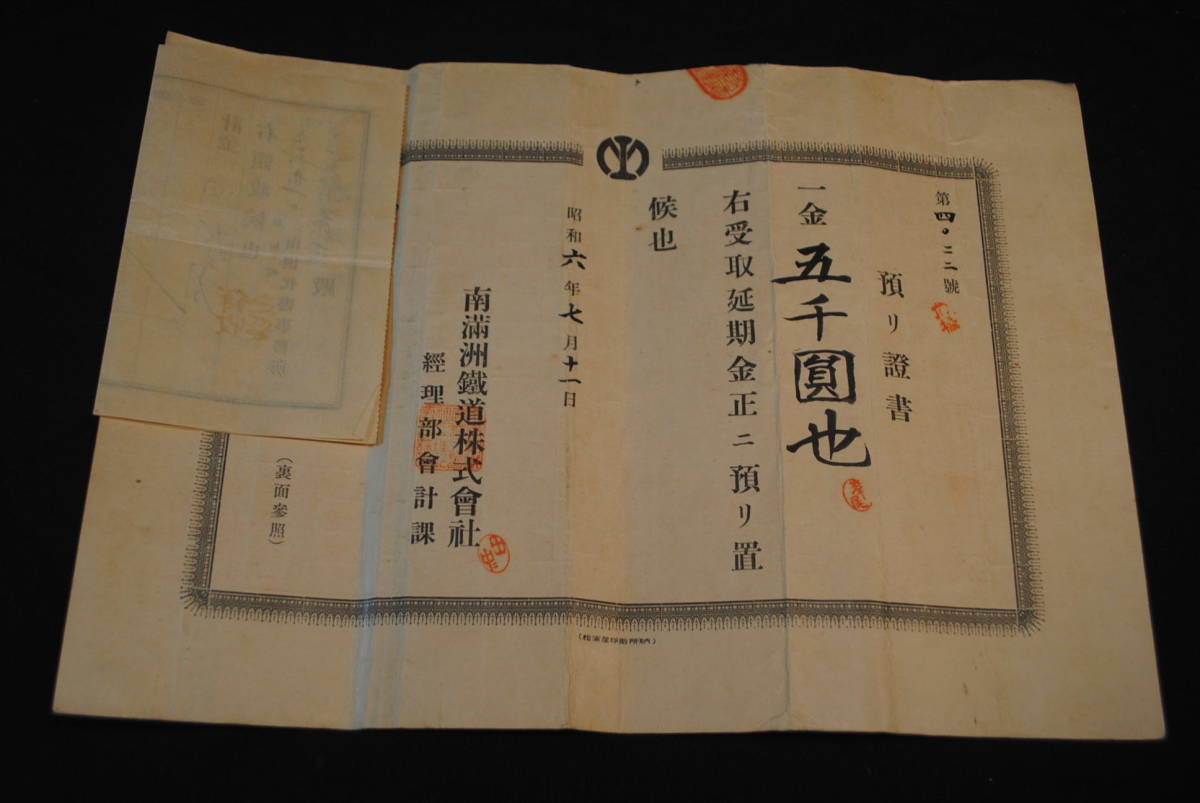 第四〇二二號
預リ證書
一金五千圓也
右受取延期金正ニ預リ置
候也
昭和六年七月十一日
南滿洲鐵道株式會社
經理部會計課
(裏面參照)